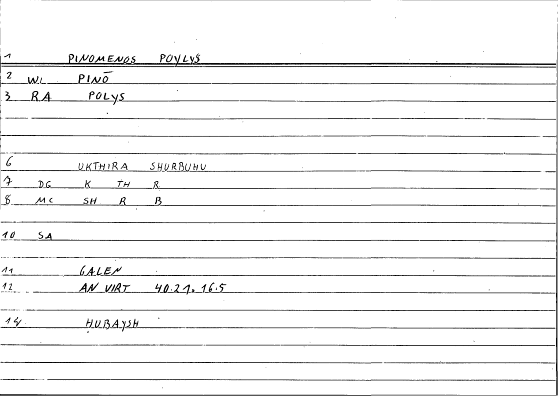 1 PINOMENOS POYLYS
2 WL PINŌ
3 RA POLYS
6 UKTHIRA SHURBUHU
7 DG K TH R
8 MC SH R B
10 SA
11 GALEN
12 AN VIRT 40.21. 16.5
14 HUBAYSH